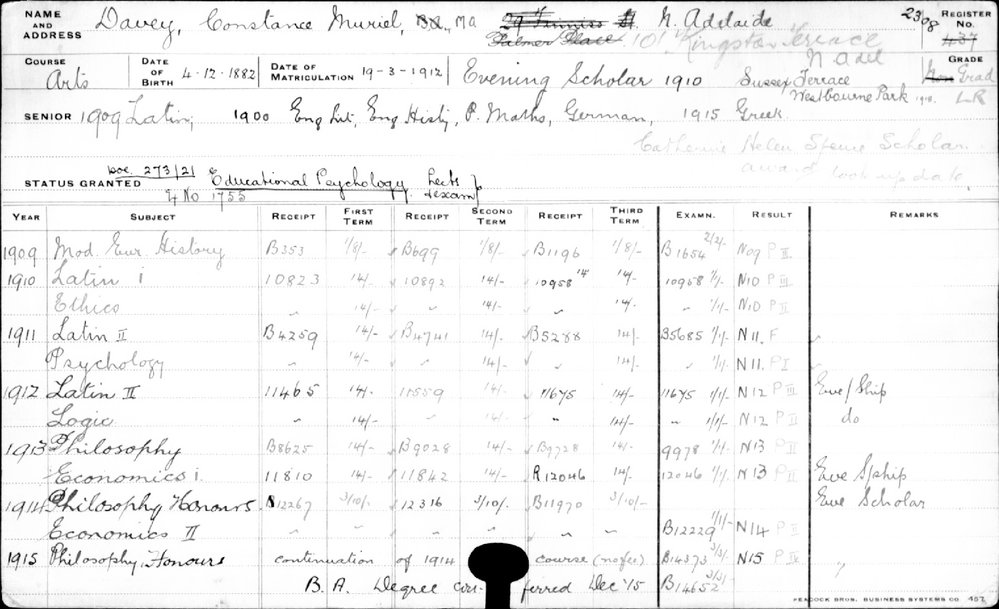 NAME AND ADDRESS Davey, Constance Muriel, B.A., MA N. Adelaide 2308 REGISTER NO. 437
Palmer Place. 101 Kingston Terrace N Adel
COURSE Arts DATE OF BIRTH 4-12-1882 DATE OF MATRICULATION 19-3-1912 Evening Scholar 1910 Sussex Terrace Westbourne Park GRADE Grad
SENIOR 1909 Latin; 1900 Eng Lit, Eng Histy, P. Maths, German, 1915 Greek. L-R
Catherine Helen Spence Scholar.
award look up date
Doc. 273/21
STATUS GRANTED Educational Psychology. Lects & exam
No 1755
YEAR SUBJECT RECEIPT FIRST TERM RECEIPT SECOND TERM RECEIPT THIRD TERM EXAMN. RESULT REMARKS
1909 Mod. Eur. History B353 1/8/- B699 1/8/- B1196 1/8/- B1654 2/2/- N09 P II
1910 Latin I 10823 14/- 10892 14/- 10958 14/- 10958 1/- N10 P III
Ethics " 14/- " 14/- " 14/- " 1/1/- N10 P II
1911 Latin II B4259 14/- B4741 14/- B5288 14/- B5685 1/1/- N11. F
Psychology " 14/- " 14/- " 14/- " 1/1/- N11. P I
1912 Latin II 11465 14/- 11559 14/- 11675 14/- 11675 1/1/- N12 P III Eve/Ship
Logic " 14/- " 14/- " 14/- " 1/1/- N12 P II do
1913 Philosophy B8625 14/- B9028 14/- B9728 14/- 9978 1/1/- N13 P II
Economics I. 11810 14/- 11842 14/- R12046 14/- 12046 1/1/- N13 P II Eve Sship
1914 Philosophy Honours B12267 3/10/- 12316 3/10/- B11970 3/10/- Eve Scholar
Economics II " " " " " " B12229 1/1/- N14 P II
1915 Philosophy, Honours continuation of 1914 course (no fee) B14373 3/3/- N15 P II "
B. A. Degree conferred Dec '15 B14652 3/3/
PEACOCK BROS. BUSINESS SYSTEMS CO. 457